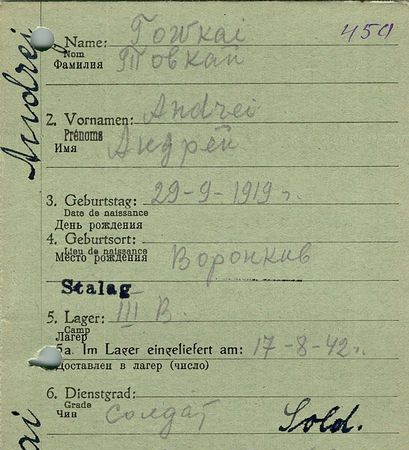 Andrej
1. Name: Гоwкаi 459
Nom
Фамилия Товкай
2. Vornamen: Andrei
Prénoms
Имя Андрей
3. Geburtstag: 29-9-1919 г.
Date de naissance
День рождения
4. Geburtsort:
Lieu de naissance
Место рождения Воронкив
Stalag
5. Lager: III B.
Camp
Лагерь
5a. Im Lager eingeliefert am: 17-8-42 г.
Доставлен в лагерь (число)
6. Dienstgrad:
Grade
Чин солдат Sold.
ai